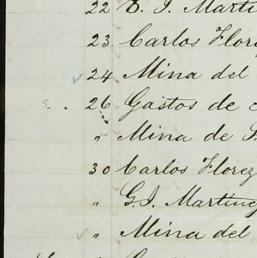 22 D. J. Martin
23 Carlos Flore
24 Mina del
26 Gastos de
" Mina de S.
30 Carlos Florez
" G. J. Martinez
" Mina del